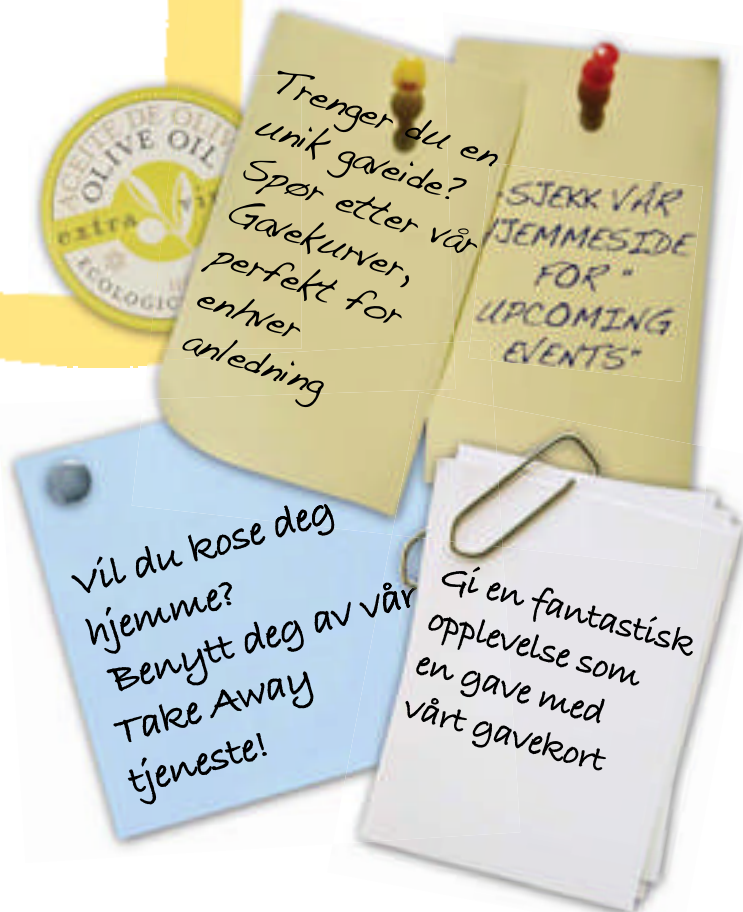 ACEITE DE OLIV
OLIVE OIL
extra vi
ECOLOGIC
Trenger du en
unik gaveide?
Spør etter vår
Gavekurver,
perfekt for
enhver
anledning
SJEKK VÅR
JEMMESIDE
FOR "
UPCOMING
EVENTS"
Vil du kose deg
hjemme?
Benytt deg av vår
Take Away
tjeneste!
Gi en fantastisk
opplevelse som
en gave med
vårt gavekort